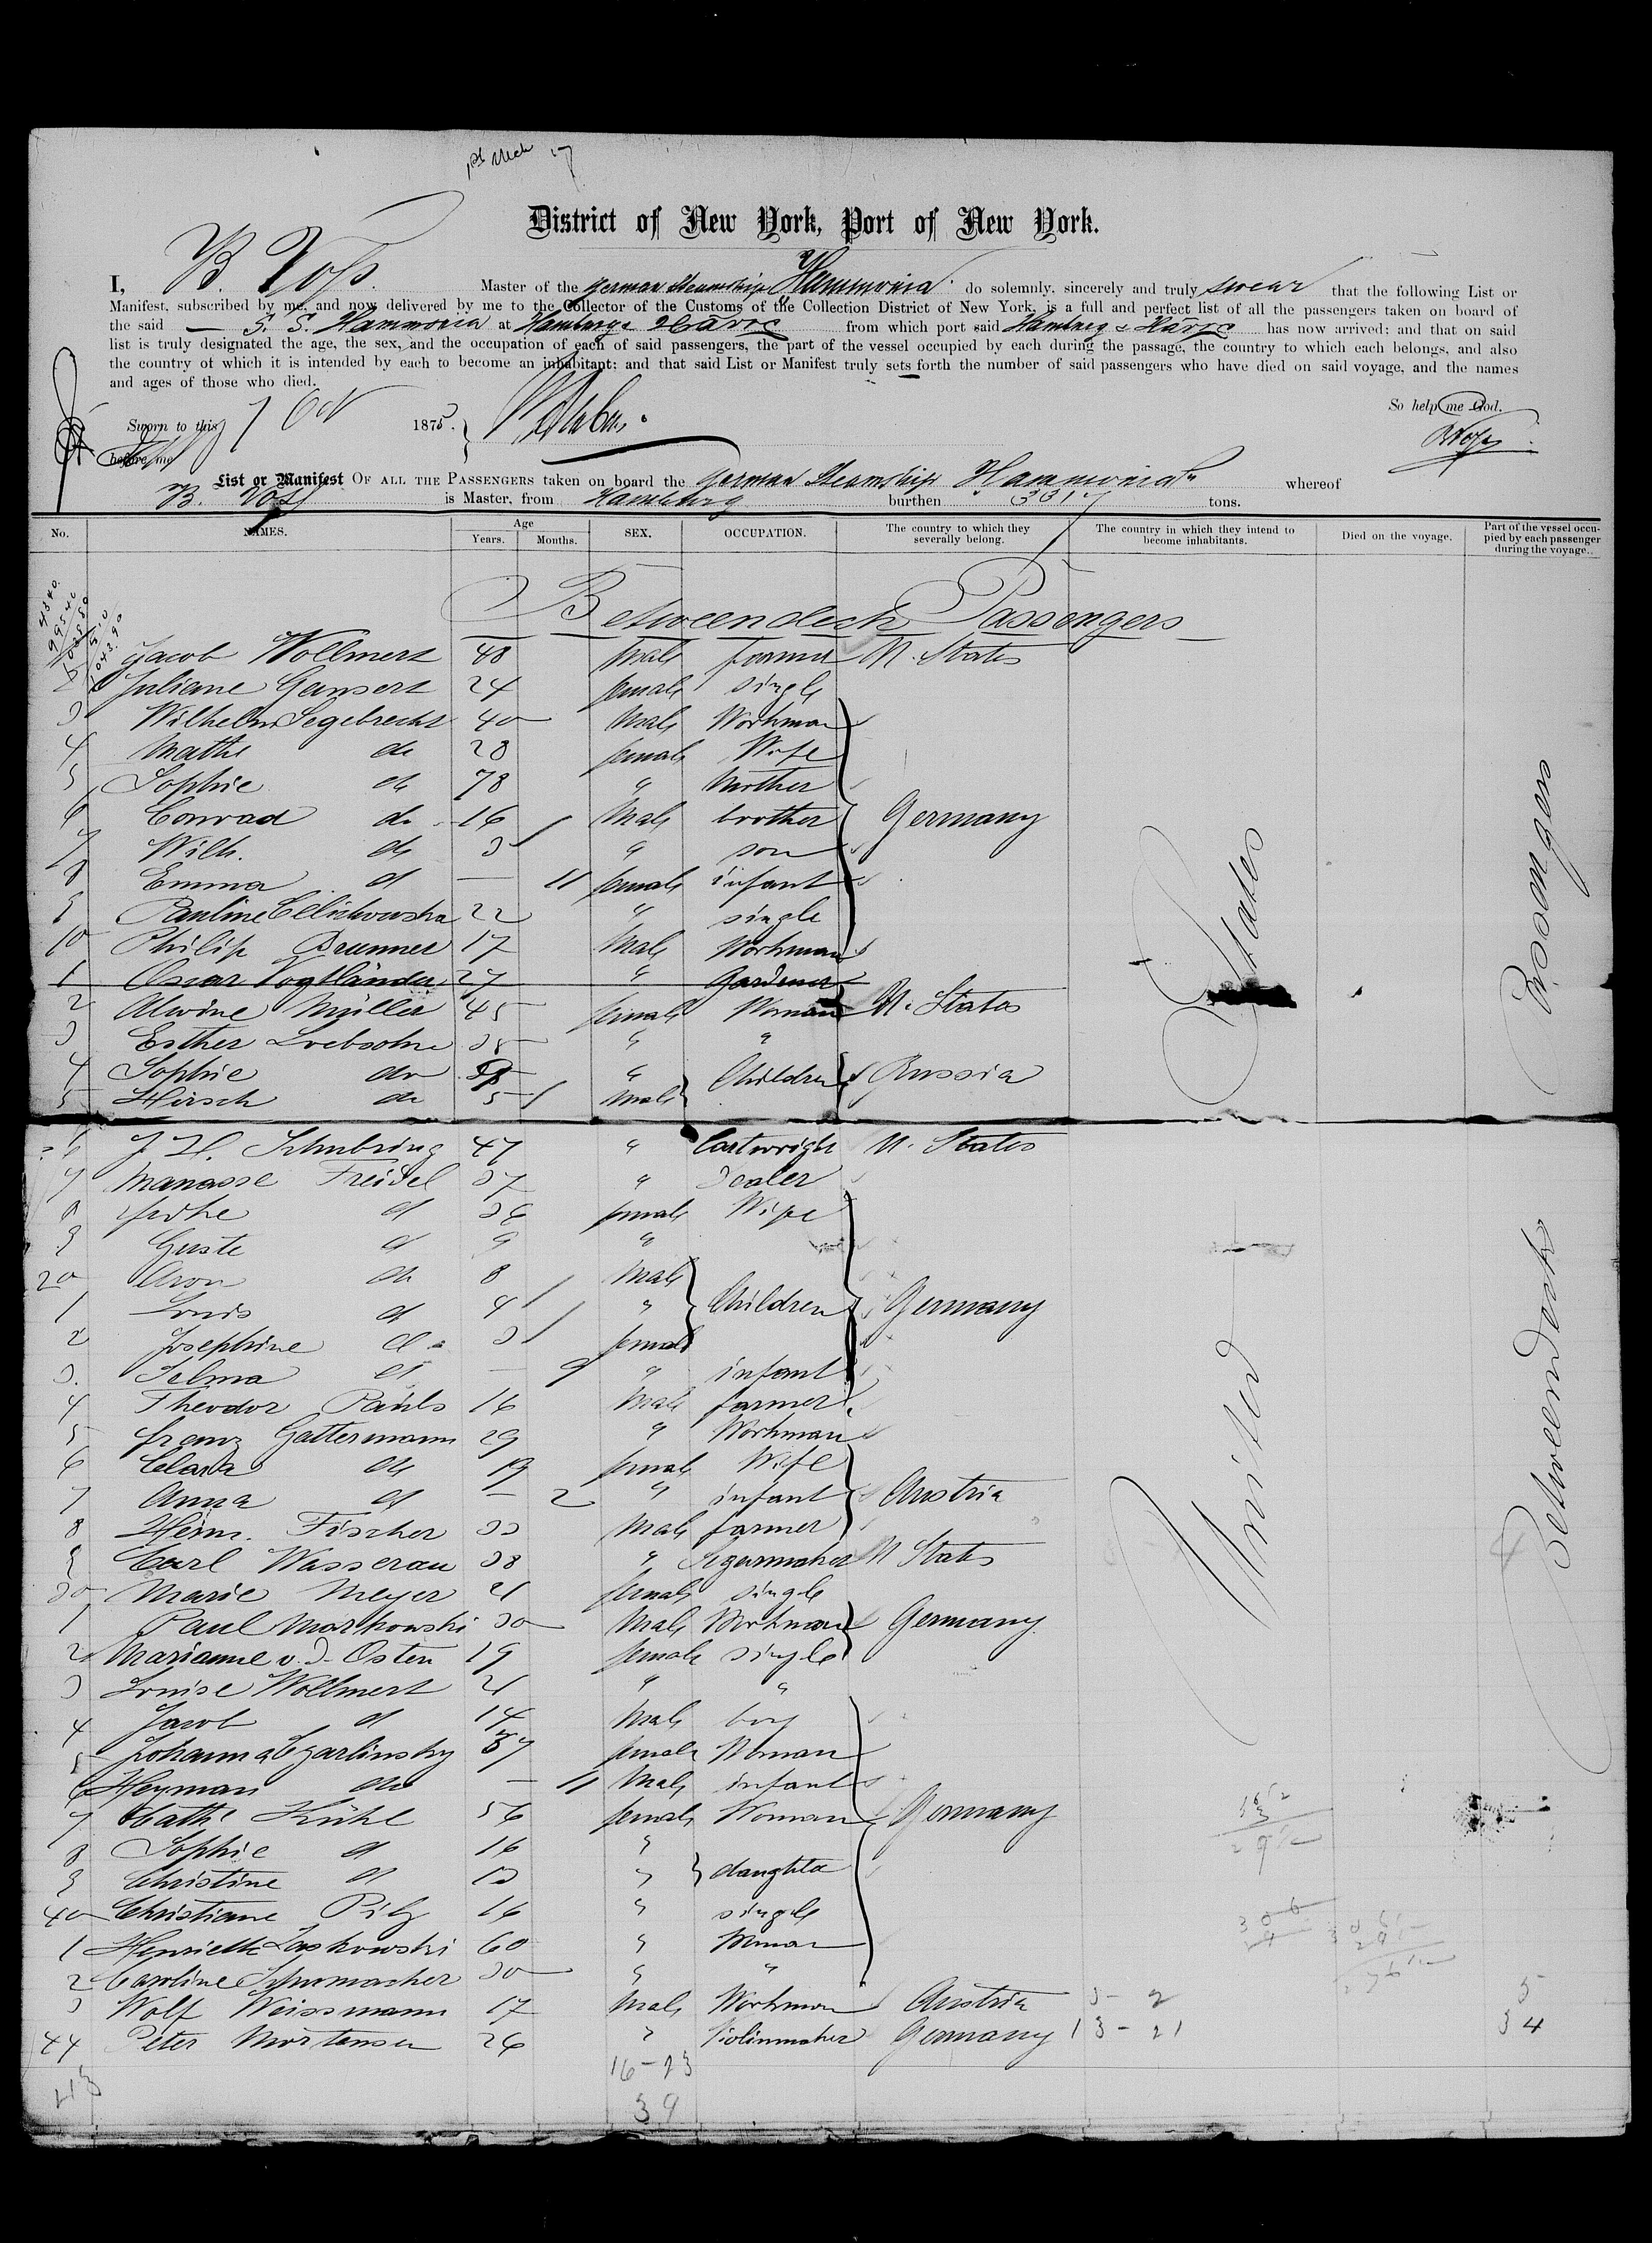 District of New York, Port of New York.
I, B. Voss. Master of the german Steamship Hammonia do solemnly, sincerely and truly swear that the following List or
Manifest, subscribed by me, and now delivered by me to the Collector of the Customs of the Collection District of New York, is a full and perfect list of all the passengers taken on board of
the said S. S. Hammonia at Hamburg & Hâvre from which port said Hamburg & Hâvre has now arrived; and that on said
list is truly designated the age, the sex, and the occupation of each of said passengers, the part of the vessel occupied by each during the passage, the country to which each belongs, and also
the country of which it is intended by each to become an inhabitant; and that said List or Manifest truly sets forth the number of said passengers who have died on said voyage, and the names
and ages of those who died.
So help me God.
Sworn to this 7 Oct 1875.
before me
BVoss
List or Manifest OF ALL THE PASSENGERS taken on board the german Steamship Hammonia whereof
B. Voss is Master, from Hamburg burthen tons.
No. NAMES. Age Years. Months. SEX. OCCUPATION. The country to which they severally belong. The country in which they intend to become inhabitants. Died on the voyage. Part of the vessel occupied by each passenger during the voyage.
Betweendeck Passengers
Jacob Wollmert 48 male farmer U. States
2 Juliane Gansert 24 female single
3 Wilhelm Segebrecht 40 male Workman
4 Mathe do 28 female Wife
5 Sophie do 78 " Mother
6 Conrad do 16 male brother Germany
7 Wilh. do 3 " son
8 Emma d — 11 female infant
9 Pauline 22 " single
10 Philip Brunner 17 male Workman
1 Oscar Vogtländer 27 " Gardener
2 Alwine Müller 45 female Woman U. States
3 Esther Loebsohn 38 " "
4 Sophie do " Children Russia
5 Hirsch do 5 male
6 J. H. Schubring 47 " Cartwright U. States
7 Manasse Freidel 37 " Dealer
8 d 36 female Wife
9 Guste d 9 "
20 Aron do 8 male
1 Louis d 4 " Children Germany
2 Josephine d 3 female
3. Selma d — 9 " infant
4 Theodor Pauls 16 male farmer
5 franz Gattermann 29 " Workman
6 Clara do 19 female Wife
7 Anna d — 2 " infant Austria
8 Heinr. Fischer 33 male farmer
9 Carl Wasserau 38 " Segarmaker U States
30 Marie Meyer 21 female single
1 Paul Markowski 30 male Workman Germany
2 Marianne v. d. Osten 19 female single
3 Louise Wollmert 21 " "
4 Jacob d 14 male boy
5 Johanna Czarlinsky 37 female Woman
6 Heyman do — 11 male infant
7 Cathe Kühl 56 female Woman Germany
8 Sophie d 16 "
9 Christine d 13 " daughter
40 Christiane Pilz 16 " single
1 Henriette Laskowski 60 " Woman
2 Caroline Schumacher 30 " "
3 Wolf Weissmann 17 male Workman Austria
44 Peter Mortensen 26 " Violinmaker Germany
United States
Betweendecks Passengers
5
34
13 - 21
16 - 23
39